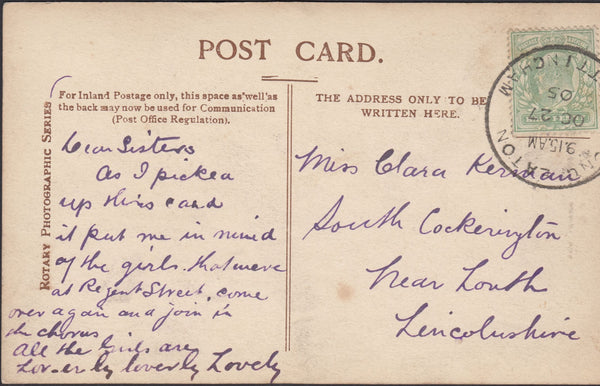 POST CARD.
ROTARY PHOTOGRAPHIC SERIES
For Inland Postage only, this space as well as
the back may now be used for Communication
(Post Office Regulation).
THE ADDRESS ONLY TO BE
WRITTEN HERE.
Dear Sisters
As I picked
up this card
it put me in mind
of the girls that were
at Regent Street, come
over again and join in
the chorus
All the Girls are
Lov-er-ly loverly Lovely
Miss Clara Kerman
South Cockerington
Near Louth
Lincolnshire
9.15AM
OC 27
05